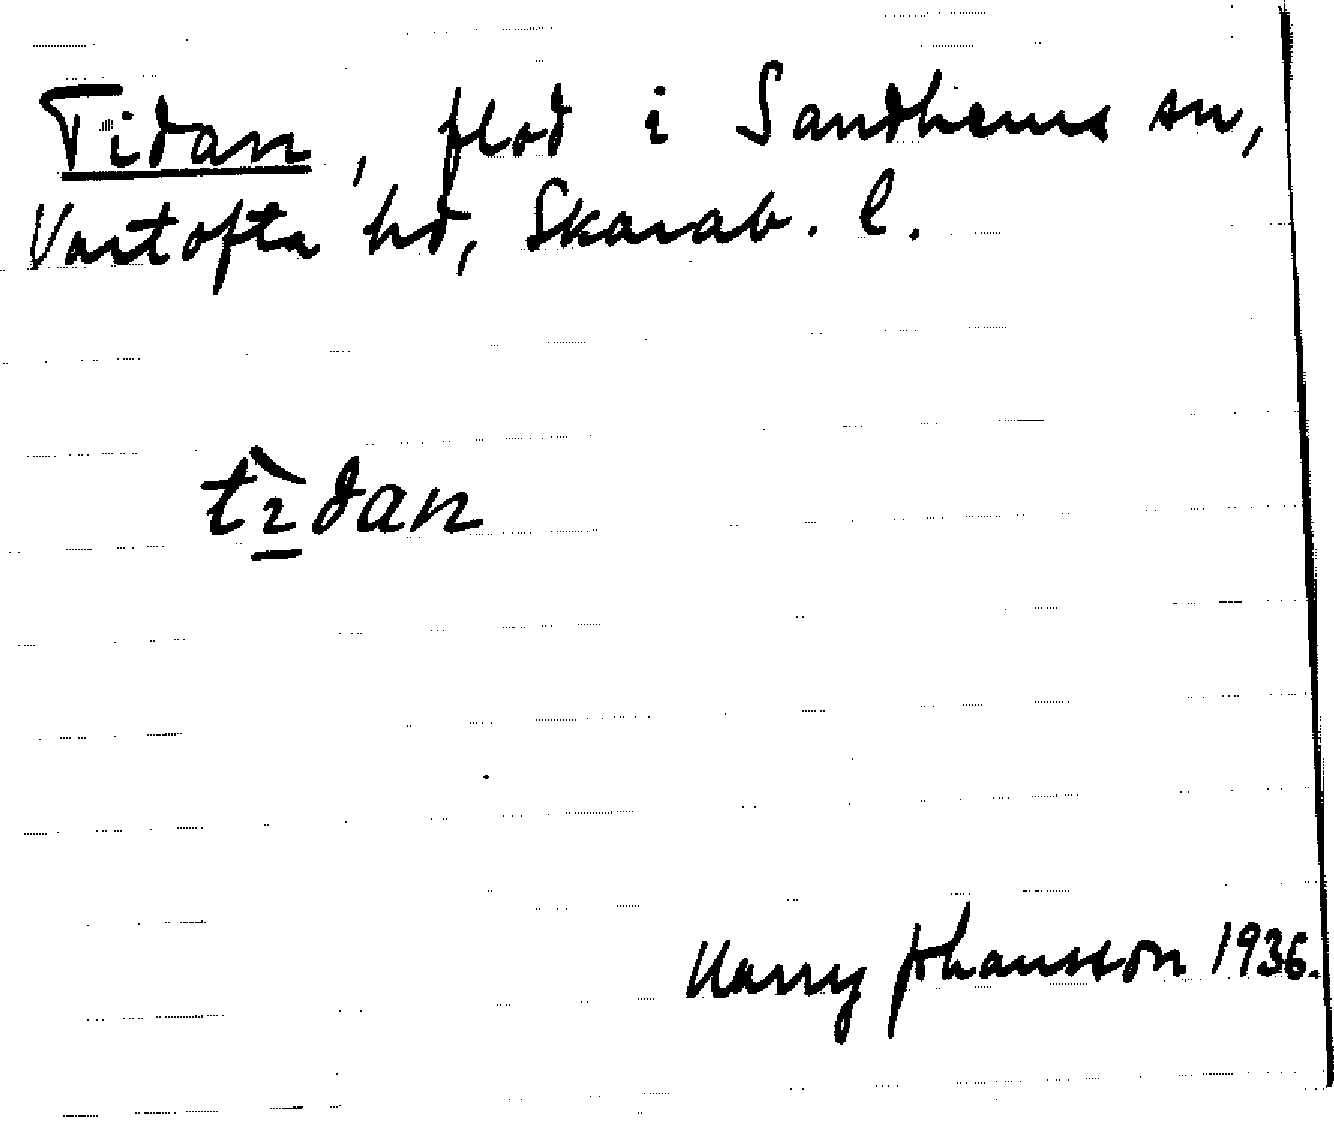 Tidan, flod i Sandhems sn,
Vartofta hd, Skarab. l.
tì̱dan
Harry Johansson 1936.